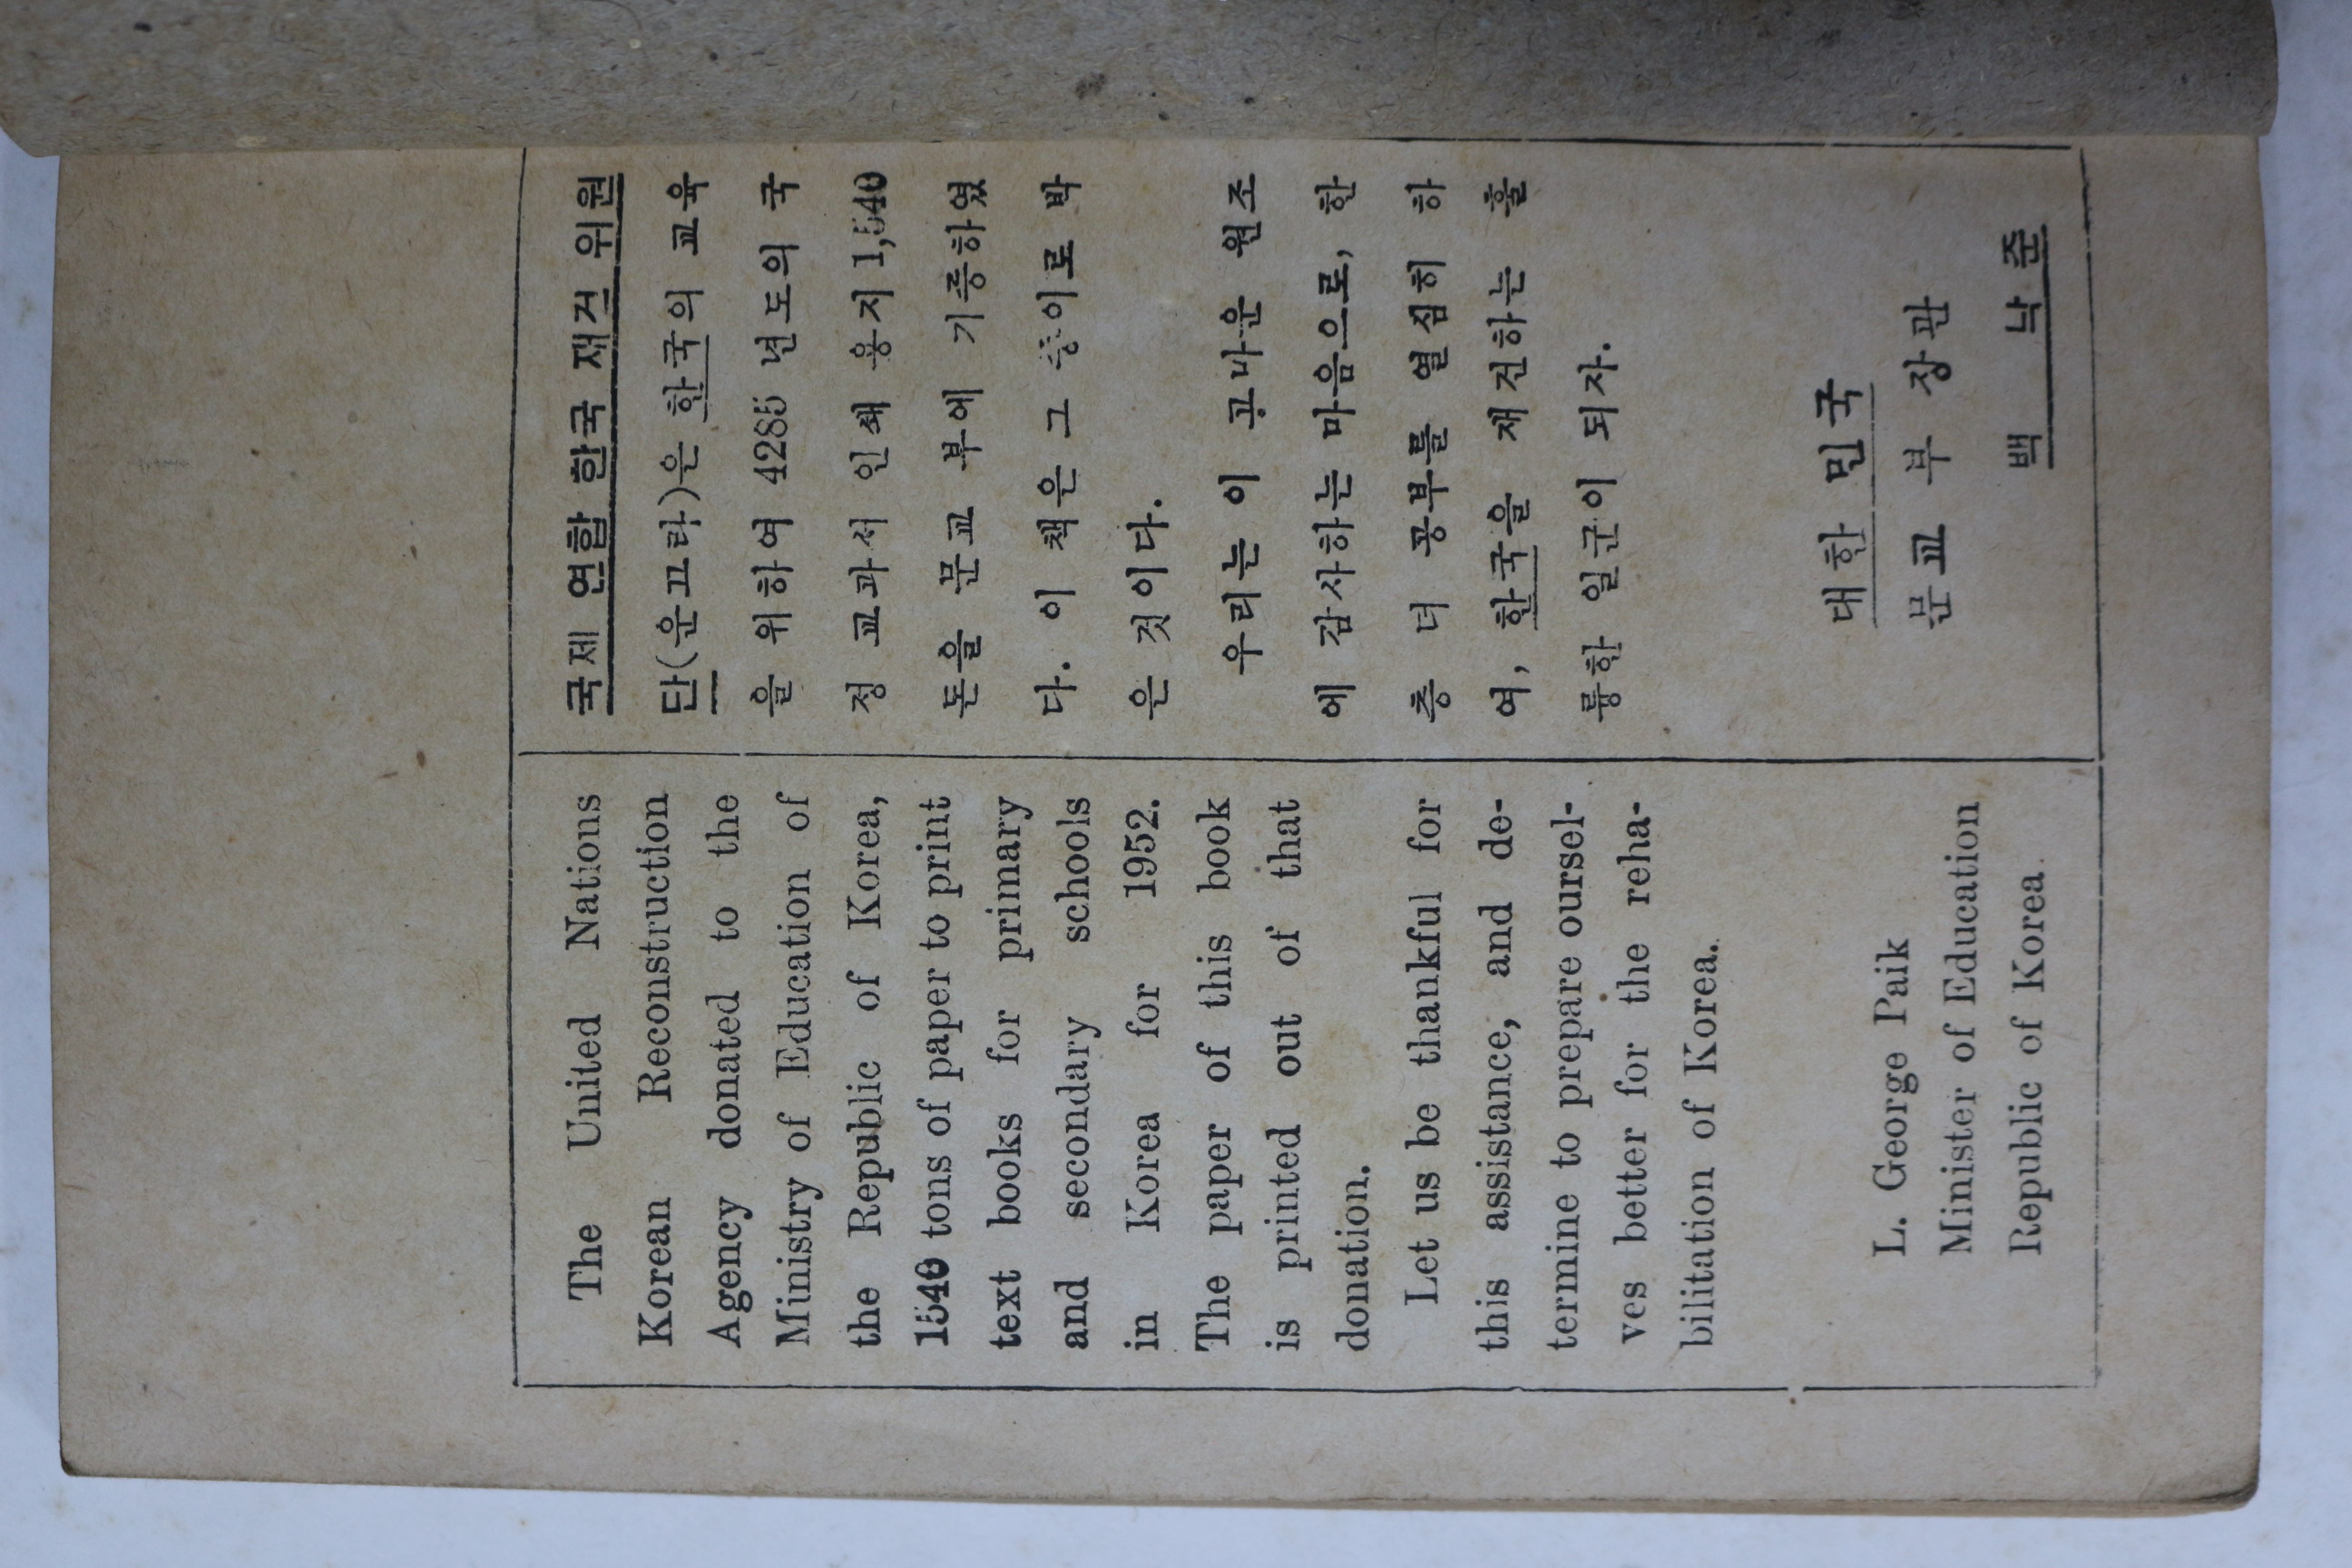 The United Nations
Korean Reconstruction
Agency donated to the
Ministry of Education of
the Republic of Korea,
1540 tons of paper to print
text books for primary
and secondary schools
in Korea for 1952.
The paper of this book
is printed out of that
donation.
Let us be thankful for
this assistance, and de-
termine to prepare oursel-
ves better for the reha-
bilitation of Korea.
L. George Paik
Minister of Education
Republic of Korea.
국제 연합 한국 재건 위원
단(운끄라)은 한국의 교육
을 위하여 4285 년도의 국
정 교과서 인쇄 용지 1,540
톤을 문교 부에 기증하였
다. 이 책은 그 종이로 박
은 것이다.
우리는 이 고마운 원조
에 감사하는 마음으로, 한
층 더 공부를 열심히 하
여, 한국을 재건하는 훌
륭한 일군이 되자.
대한 민국
문교 부 장관
백 낙 준